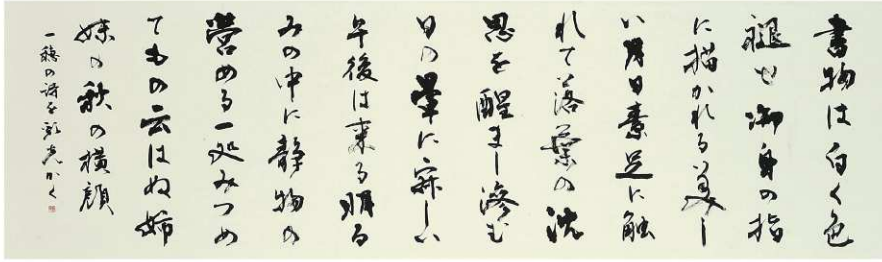 書物は白く色
褪せ御身の指
に描かれる美し
い月日素足に触
れて落葉の沈
思を醒まし滲む
日の暈に寂しい
午後は来る明る
みの中に静物の
営める一処みつめ
てもの云はぬ姉
妹の秋の横顔
一穂の詩を彩光かく